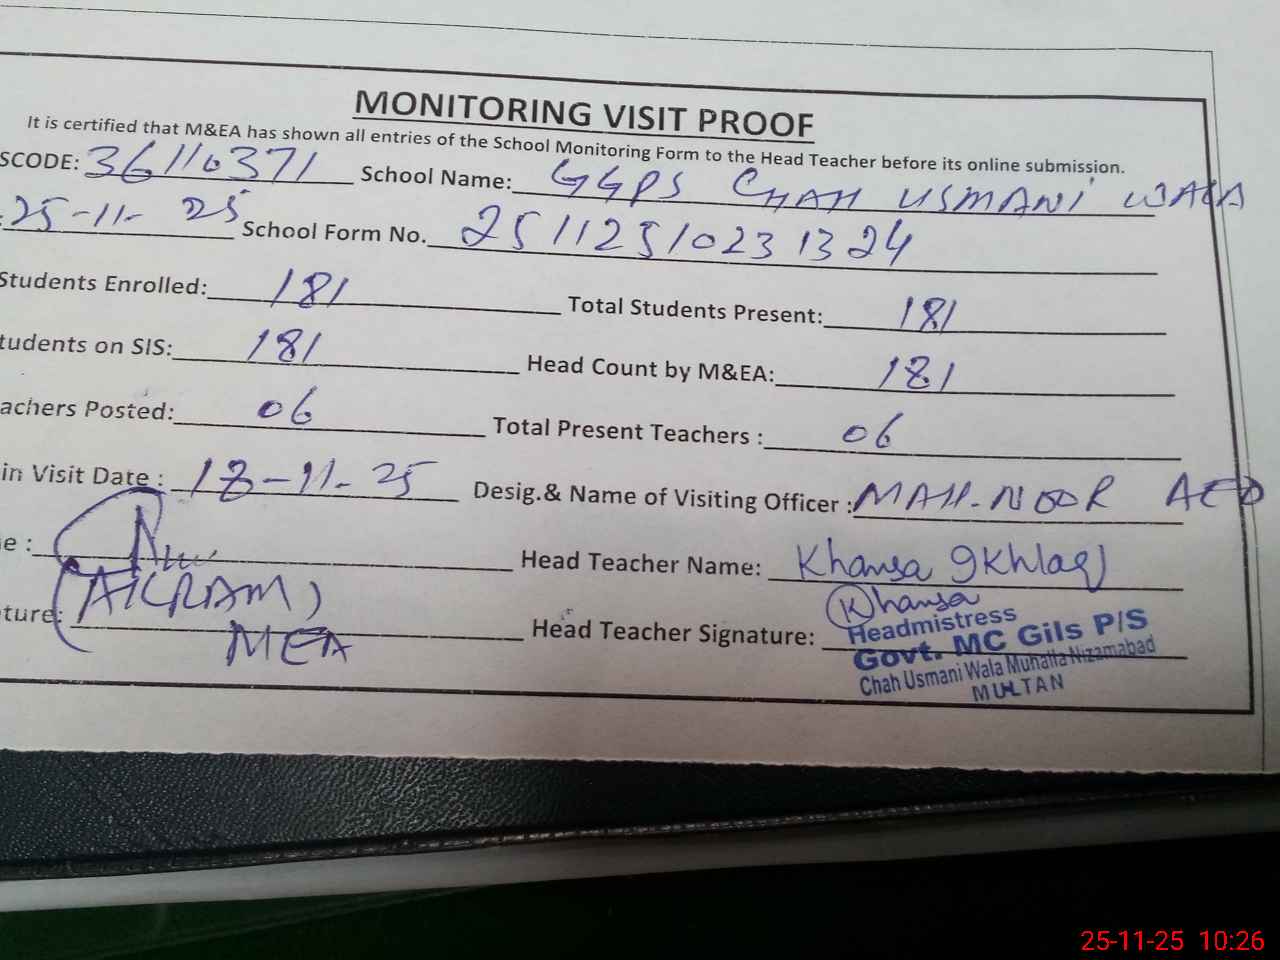 MONITORING VISIT PROOF
It is certified that M&EA has shown all entries of the School Monitoring Form to the Head Teacher before its online submission.
SCODE: 36110371 School Name: GGPS CHAH USMANI WALA
: 25-11-25 School Form No. 25112510231324
Students Enrolled: 181 Total Students Present: 181
tudents on SIS: 181 Head Count by M&EA: 181
achers Posted: 06 Total Present Teachers : 06
in Visit Date : 18-11-25 Desig.& Name of Visiting Officer : MAH-NOOR AEO
e : Head Teacher Name: Khansa Ikhlaq
(AKRAM)
ture: MEA Head Teacher Signature: Khansa
Headmistress
Govt. MC Gils P/S
Chah Usmani Wala Muhalla Nizamabad
MULTAN
25-11-25 10:26